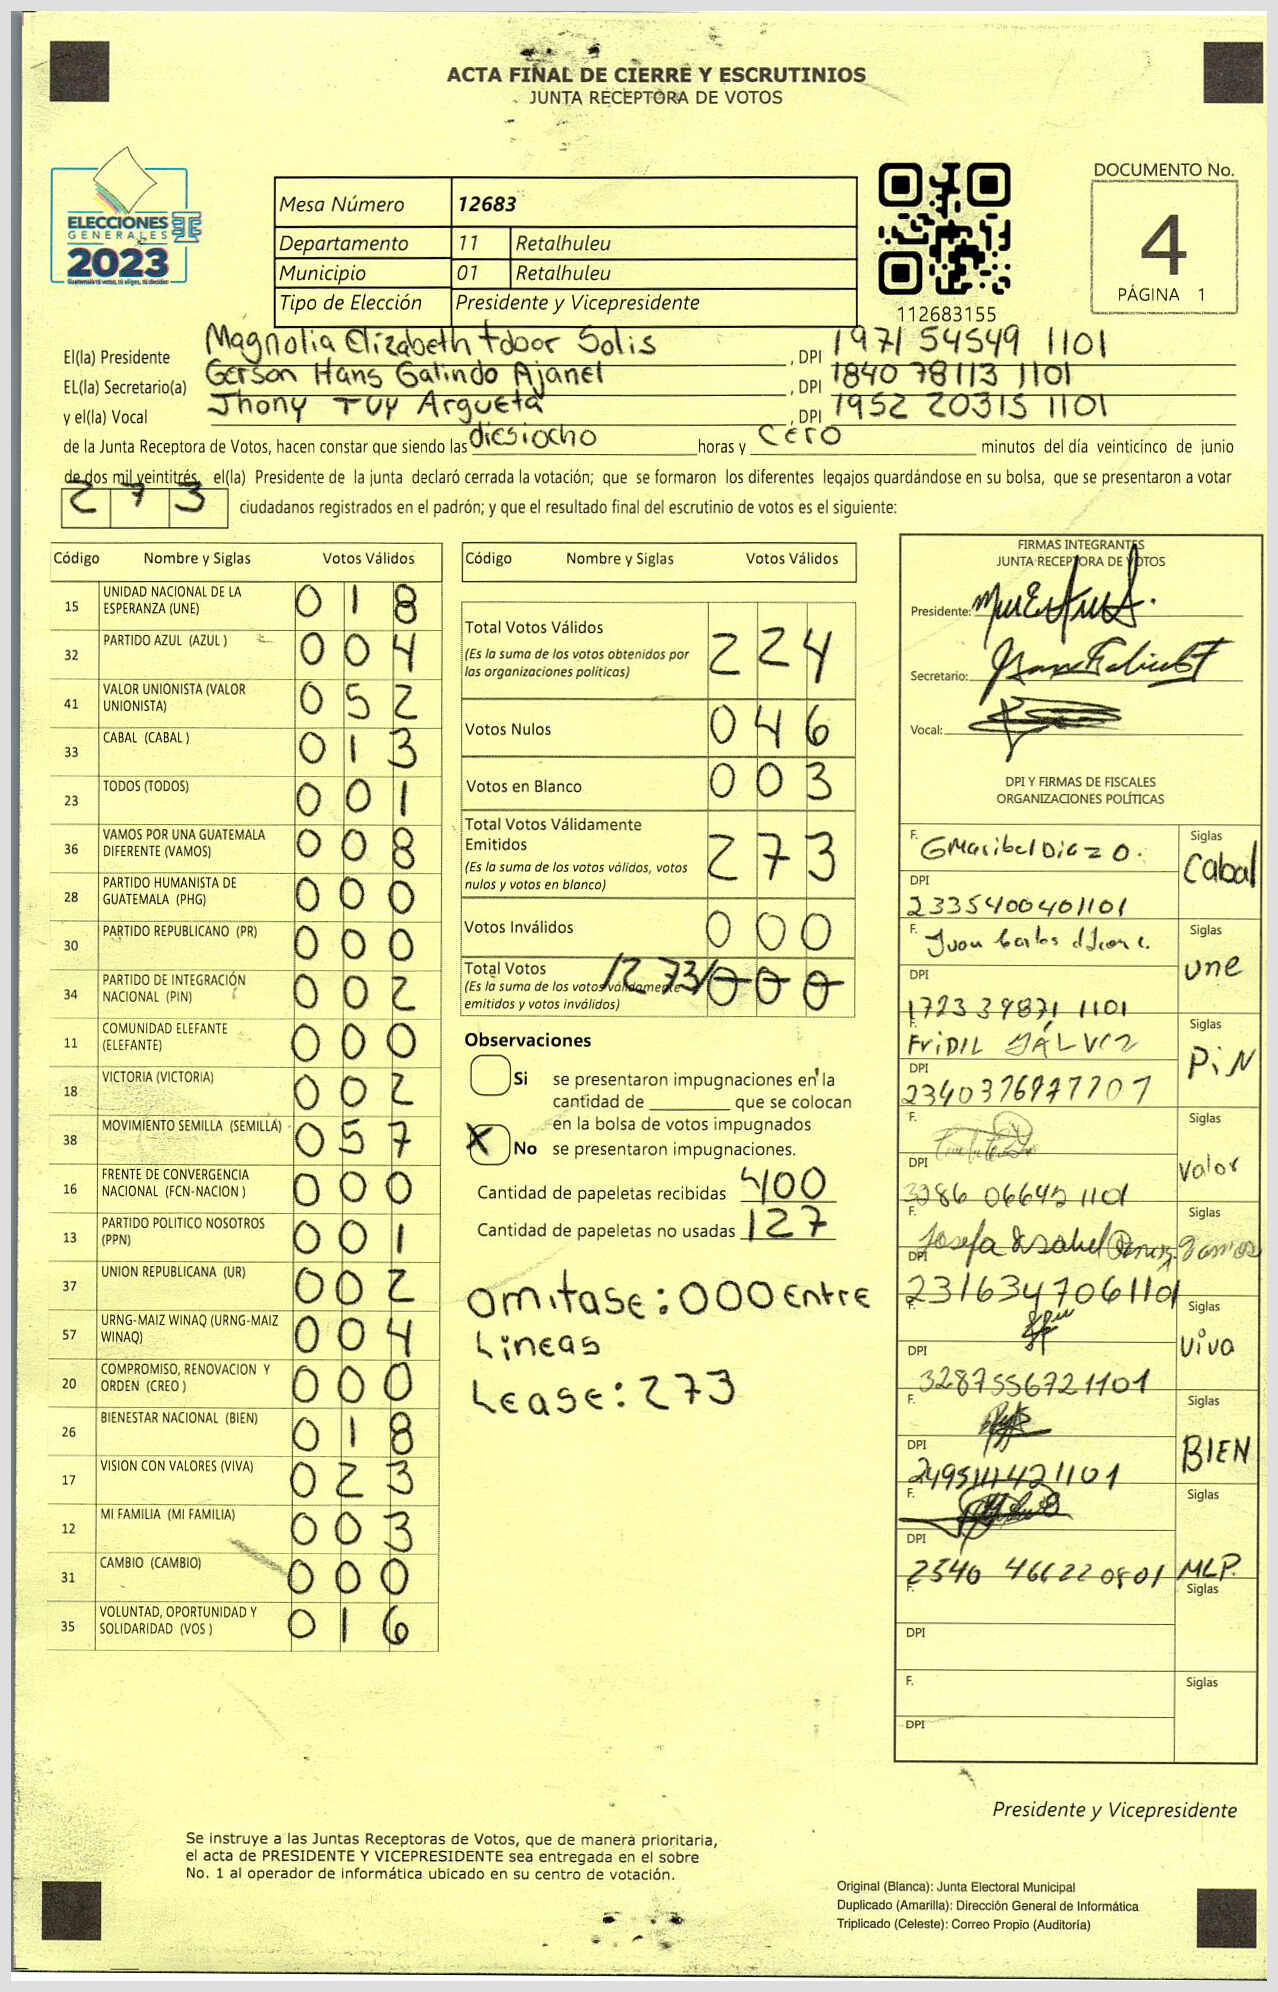 ACTA FINAL DE CIERRE Y ESCRUTINIOS
JUNTA RECEPTORA DE VOTOS
ELECCIONES
GENERALES
2023
Guatemala tú votas, tú eliges, tú decides
Mesa Número 12683
Departamento 11 Retalhuleu
Municipio 01 Retalhuleu
Tipo de Elección Presidente y Vicepresidente
112683155
DOCUMENTO No.
4
PÁGINA 1
El(la) Presidente Magnolia Elizabeth Solis , DPI 1971 54549 1101
EL(la) Secretario(a) Gerson Hans Galindo Ajanel , DPI 1840 78113 1101
y el(la) Vocal Jhony Tuy Argueta , DPI 1952 20315 1101
de la Junta Receptora de Votos, hacen constar que siendo las diesiocho horas y cero minutos del día veinticinco de junio
de dos mil veintitrés, el(la) Presidente de la junta declaró cerrada la votación; que se formaron los diferentes legajos quardándose en su bolsa, que se presentaron a votar
273 ciudadanos registrados en el padrón; y que el resultado final del escrutinio de votos es el siguiente:
Código Nombre y Siglas Votos Válidos
15 UNIDAD NACIONAL DE LA ESPERANZA (UNE) 018
32 PARTIDO AZUL (AZUL ) 004
41 VALOR UNIONISTA (VALOR UNIONISTA) 052
33 CABAL (CABAL ) 013
23 TODOS (TODOS) 001
36 VAMOS POR UNA GUATEMALA DIFERENTE (VAMOS) 008
28 PARTIDO HUMANISTA DE GUATEMALA (PHG) 000
30 PARTIDO REPUBLICANO (PR) 000
34 PARTIDO DE INTEGRACIÓN NACIONAL (PIN) 002
11 COMUNIDAD ELEFANTE (ELEFANTE) 000
18 VICTORIA (VICTORIA) 002
38 MOVIMIENTO SEMILLA (SEMILLA) 057
16 FRENTE DE CONVERGENCIA NACIONAL (FCN-NACION ) 000
13 PARTIDO POLITICO NOSOTROS (PPN) 001
37 UNION REPUBLICANA (UR) 002
57 URNG-MAIZ WINAQ (URNG-MAIZ WINAQ) 004
20 COMPROMISO, RENOVACION Y ORDEN (CREO ) 000
26 BIENESTAR NACIONAL (BIEN) 018
17 VISION CON VALORES (VIVA) 023
12 MI FAMILIA (MI FAMILIA) 003
31 CAMBIO (CAMBIO) 000
35 VOLUNTAD, OPORTUNIDAD Y SOLIDARIDAD (VOS ) 016
Código Nombre y Siglas Votos Válidos
Total Votos Válidos 224
(Es la suma de los votos obtenidos por
las organizaciones políticas)
Votos Nulos 046
Votos en Blanco 003
Total Votos Válidamente
Emitidos 273
(Es la suma de los votos válidos, votos
nulos y votos en blanco)
Votos Inválidos 000
Total Votos /273/ 000
(Es la suma de los votos válidamente
emitidos y votos inválidos)
Observaciones
Si se presentaron impugnaciones en la
cantidad de ________ que se colocan
en la bolsa de votos impugnados
X No se presentaron impugnaciones.
Cantidad de papeletas recibidas 400
Cantidad de papeletas no usadas 127
omitase: 000 Entre
Lineas
Lease: 273
FIRMAS INTEGRANTES
JUNTA RECEPTORA DE VOTOS
Presidente:
Secretario:
Vocal:
DPI Y FIRMAS DE FISCALES
ORGANIZACIONES POLÍTICAS
F. GMaribel Diaz O. Siglas Cabal
DPI 2335400401101
F. Juan Carlos Siglas une
DPI 1723 39871 1101
F. Siglas PiN
DPI 2340376977707
F. Siglas Valor
DPI 3286 06642 1101
F. Josefa Isabel Siglas
DPI 2316347061101
F. Siglas Viva
DPI 3287556721101
F. Siglas BIEN
DPI 2495111421101
F. Siglas MLP.
DPI 2540 46622 0801
F. Siglas
DPI
F. Siglas
DPI
Presidente y Vicepresidente
Se instruye a las Juntas Receptoras de Votos, que de manera prioritaria,
el acta de PRESIDENTE Y VICEPRESIDENTE sea entregada en el sobre
No. 1 al operador de informática ubicado en su centro de votación.
Original (Blanca): Junta Electoral Municipal
Duplicado (Amarilla): Dirección General de Informática
Triplicado (Celeste): Correo Propio (Auditoría)